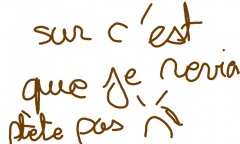 sur c'est
que je revia
ptete pas